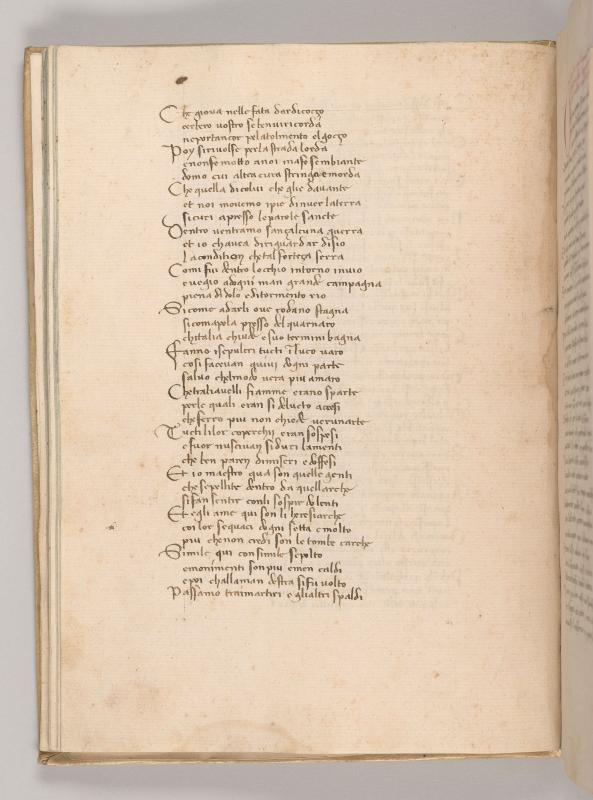 Che giova nelle fata dardicozo
cerbero vostro se ben vi ricorda
ne porta ncor pelato lmento el gozo
Poy si rivolse per la strada lorda
e non fe motto a noi ma fe sembiante
domo cui altra cura stringa e morda
Che quella di colui che glie davante
et noi movemo ipie dinver la terra
sicuri apresso le parole sancte
Dentro ventramo sanzalcuna guerra
et io chavea di riguardar disio
La condition chetal forteza serra
Comi fui dentro locchio intorno invio
e vegio adogni man grande campagna
piena di dolo e di tormento rio
Sicome adarli ove rodano stagna
sicom a pola presso del quarnaro
chitalia chiude e suo termini bagna
Fanno isepulcri tucti il luco varo
cosi facevan quivi dogni parte
salvo chelmodo vera piu amaro
Che tra li avelli fiamme erano sparte
per le quali eran si del tucto accesi
che ferro piu non chiede verun arte
Tucti li lor coperchi eran sospesi
e fuor nuscivan si duri lamenti
che ben paren di miseri e doffesi
Et io maestro qua son quelle genti
che sepellite dentro da quell arche
si fan sentir con li sospir dolenti
Et egli a me qui son li heresiarche
coi lor sequaci dogni setta e molto
piu che non credi son le tombe carche
Simile qui con simile sepolto
e monimenti son piu e men caldi
e poi challa man destra si fu volto
Passamo tra i martiri e gli altri spaldi